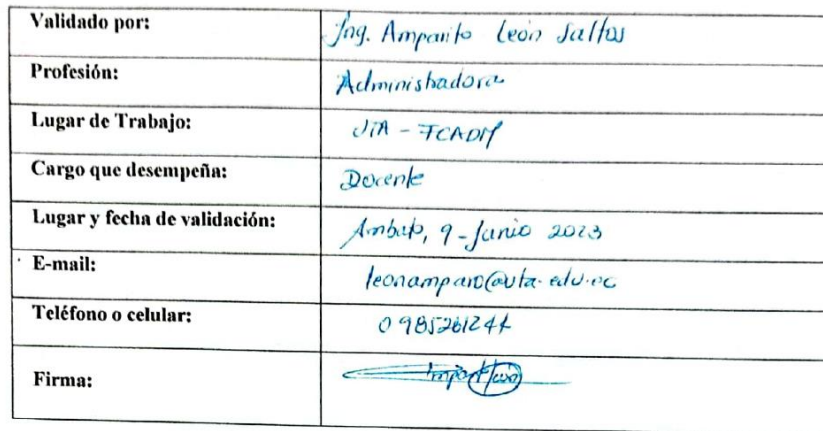 Validado por: Ing. Amparito León Saltos
Profesión: Administradora
Lugar de Trabajo: UTA - FCADM
Cargo que desempeña: Docente
Lugar y fecha de validación: Ambato, 9 - Junio 2023
E-mail: leonamparo@uta.edu.ec
Teléfono o celular:
Firma: